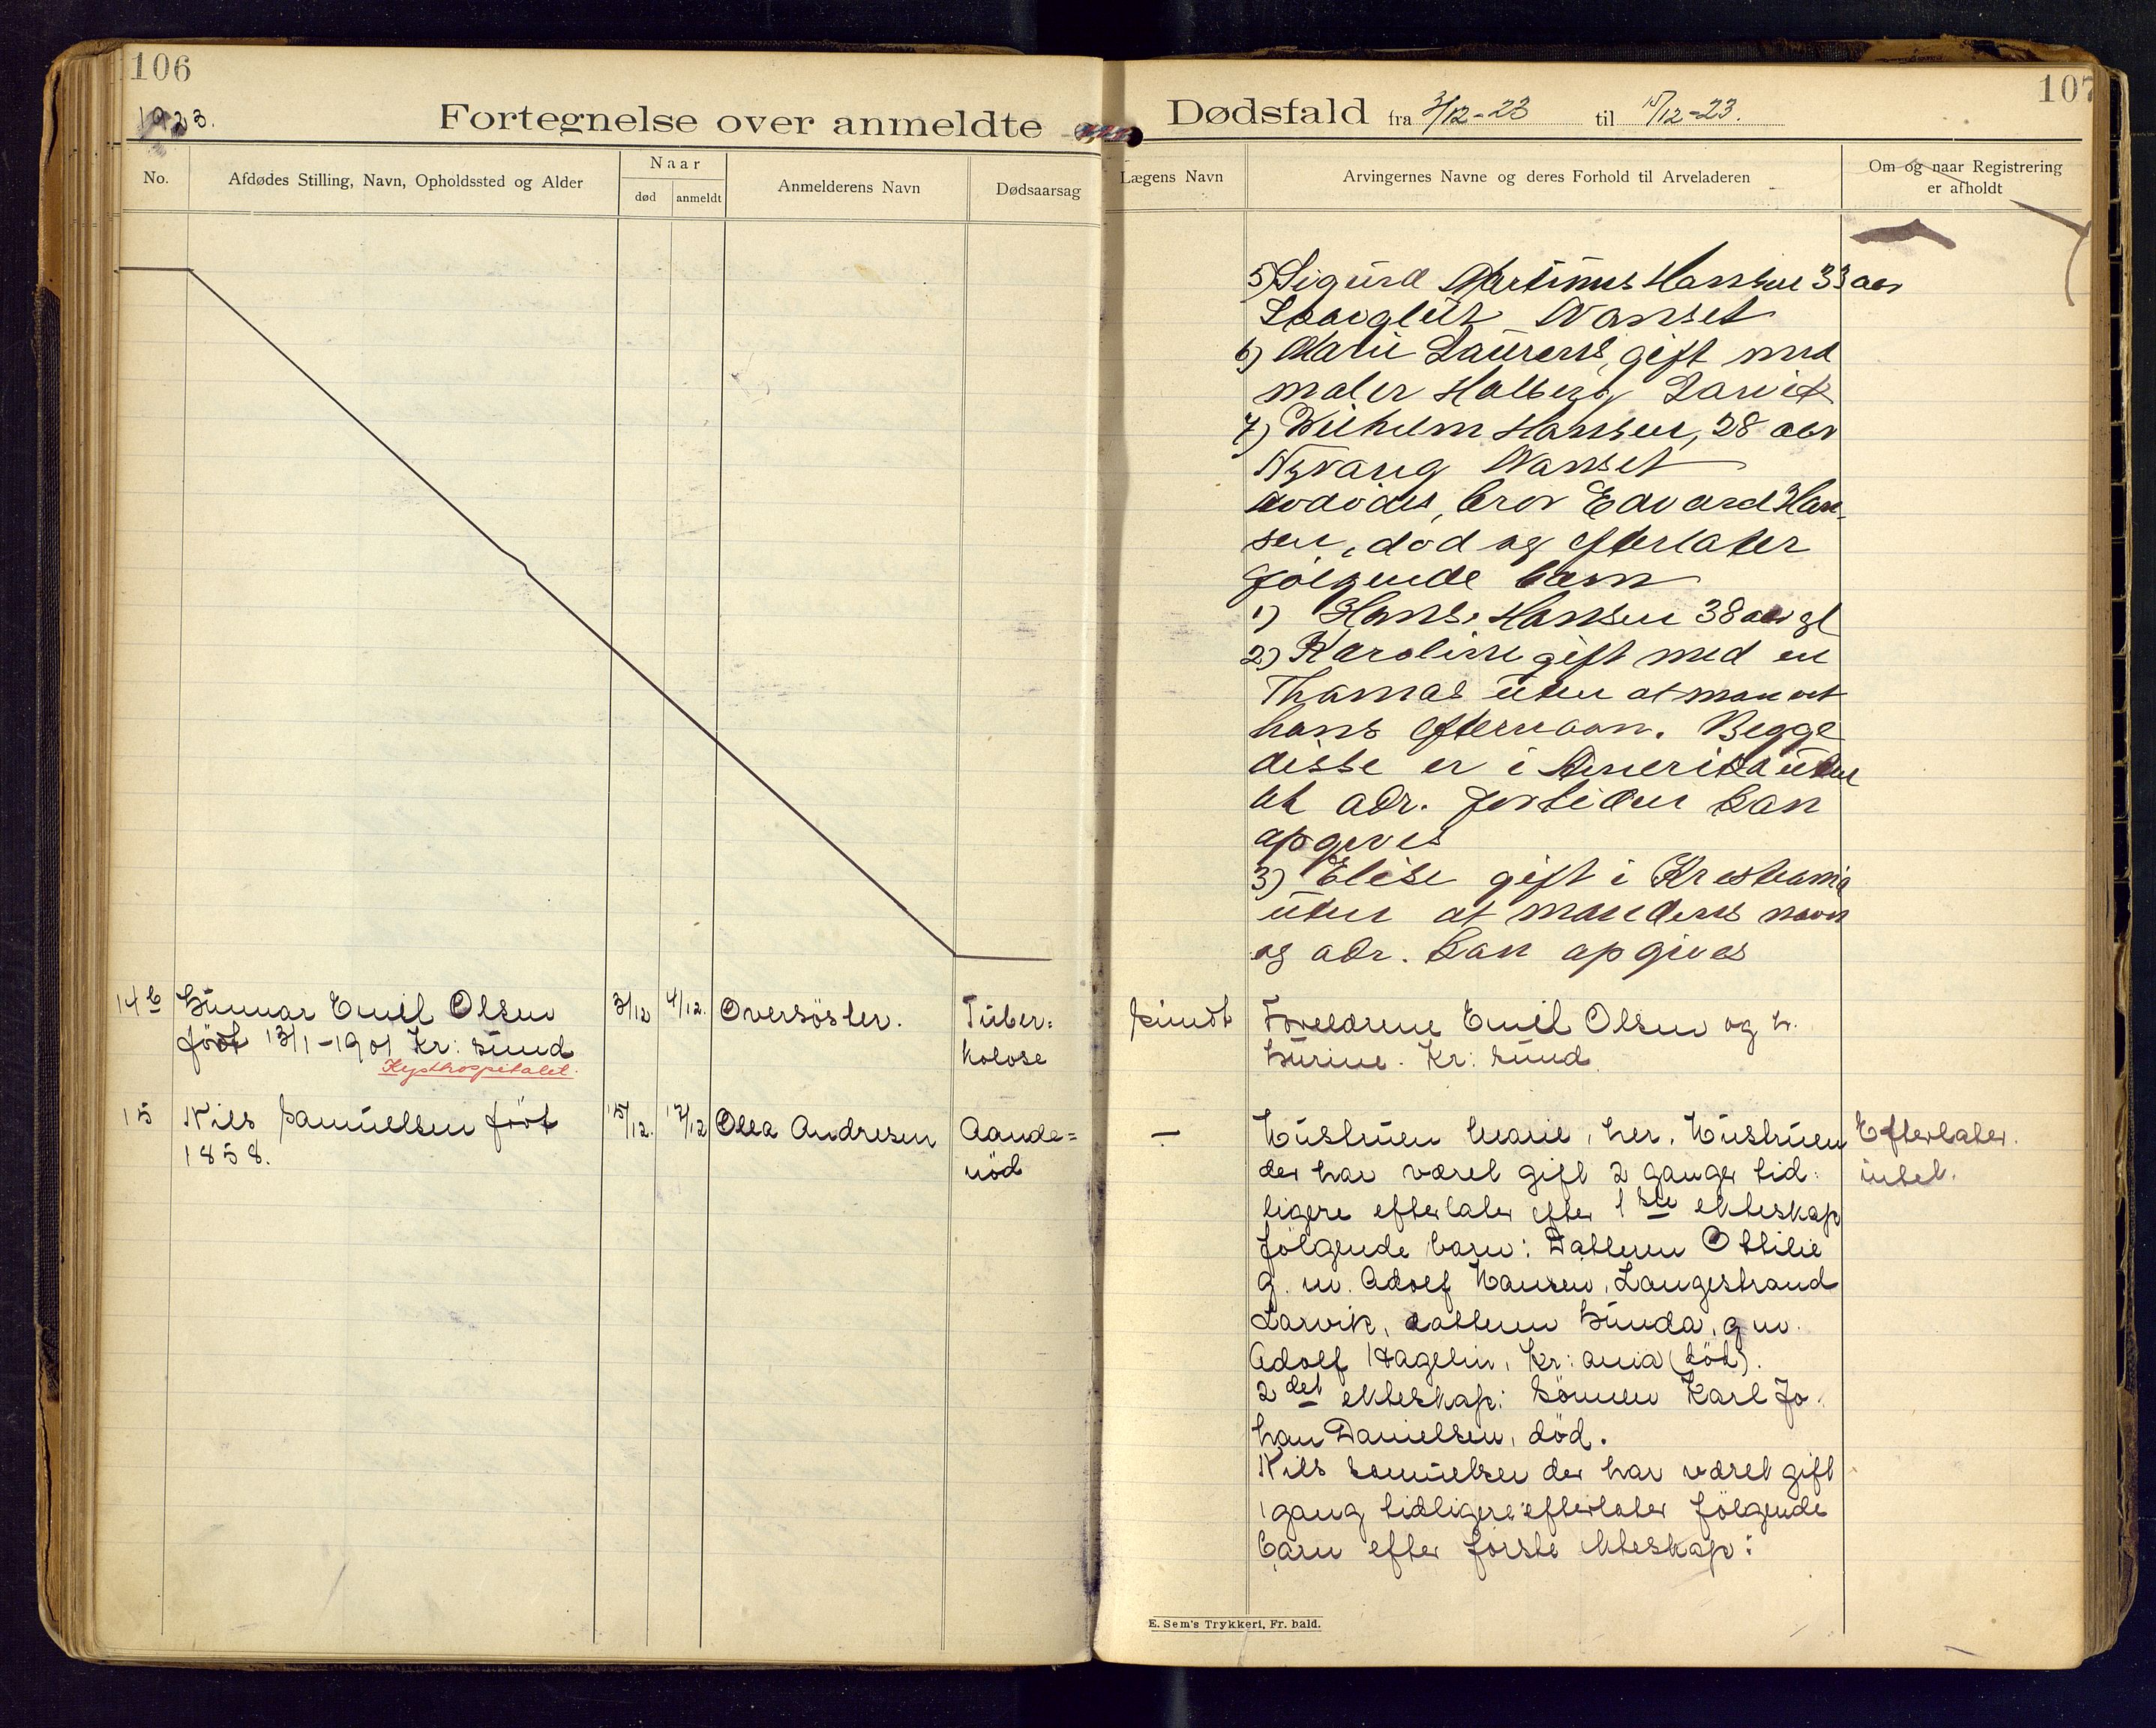 106
1923.
Fortegnelse over anmeldte
No.
Afdødes Stilling, Navn, Opholdssted og Alder
Naar
død
anmeldt
Anmelderens Navn
Dødsaarsag
14 b
Gunnar Emil Olsen
født 13/1-1901 Kr: sund
Kysthospitalet.
3/12
4/12.
Oversöster.
Tuber:
kolose
15
Nils Samuelsen født
1858.
15/12.
17/12
Olea Andresen
Aande=
nöd
107
Dødsfald fra 3/12-23 til 15/12-23.
Lægens Navn
Arvingernes Navne og deres Forhold til Arveladeren
Om og naar Registrering
er afholdt
5) Sigurd Martinus Hansen 33 aar
Nanset
6) Marie Laurens, gift med
maler Halberg Larvik
7) Wilhelm Hansen, 28 aar
Nyvang Nanset
avdødes, bror Edvard Han-
sen, død og efterlater
følgende barn
1) Hans Hansen 38 aar gl
2) Karoline gift med en
Thomas uten at man vet
hans efternavn. Begge
disse er i Amerika uten
at adr. fortiden kan
opgives
3) Elise gift i Kristiania
uten at mandens navn
og adr. kan opgives
Foreldrene Emil Olsen og h.
Gurine. Kr: sund.
—
Hustruen Marie, her. Hustruen
der har været gift 2 ganger tid:
ligere efterlater efter 1ste ekteskap
følgende barn: Datteren Ottilie
g. m. Adolf Hansen, Langestrand
Larvik, datteren Gunda, g m.
Adolf Hagelin, Kr: ania (död).
2det ekteskap: Sönnen Karl Jo.
han Danielsen, död.
Nils Samuelsen der har været gift
1 gang tidligere efterlater følgende
barn efter første ekteskap:
Efterlater.
intet.
E. Sem's Trykkeri, Fr. hald.